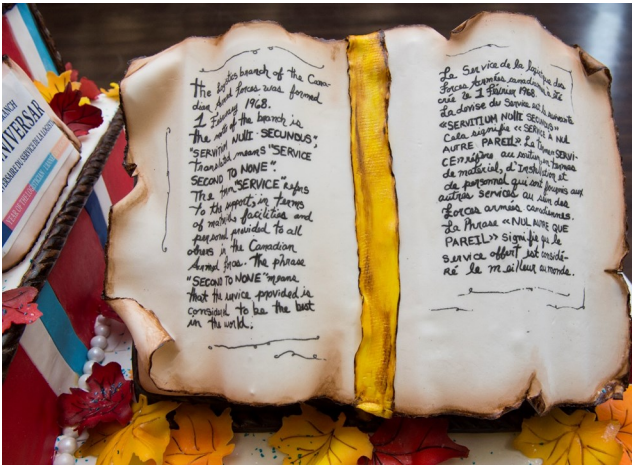 RANCH
NIVERSAR
the logistics branch of the Cana-
dian Armed Forces was formed
1 February 1968.
the motto of the branch is
"SERVITIUM NULLI SECUNDUS",
translated means "SERVICE
SECOND TO NONE".
The term "SERVICE" refers
to the support, in terms
of materiels facilities and
personnel provided to all
others in the Canadian
Armed forces. the phrase
"SECOND TO NONE" means
that the service provided is
considered to be the best
in the world.
Le Service de la logistique des
Forces Armées canadiennes a été
créé le 1 Février 1968.
La devise du Service est la suivante
«SERVITIUM NULLI SECUNDUS»
Cela signifie «SERVICE À NUL
AUTRE PAREIL». Le terme SERVI-
CE réfère au soutien, en termes
de matériel, d'installation et
de personnel qui sont fournis aux
autres services au sein des
Forces armées canadiennes.
La Phrase «NUL AUTRE QUE
PAREIL» signifie que le
service offert est considé-
ré le meilleur au monde.